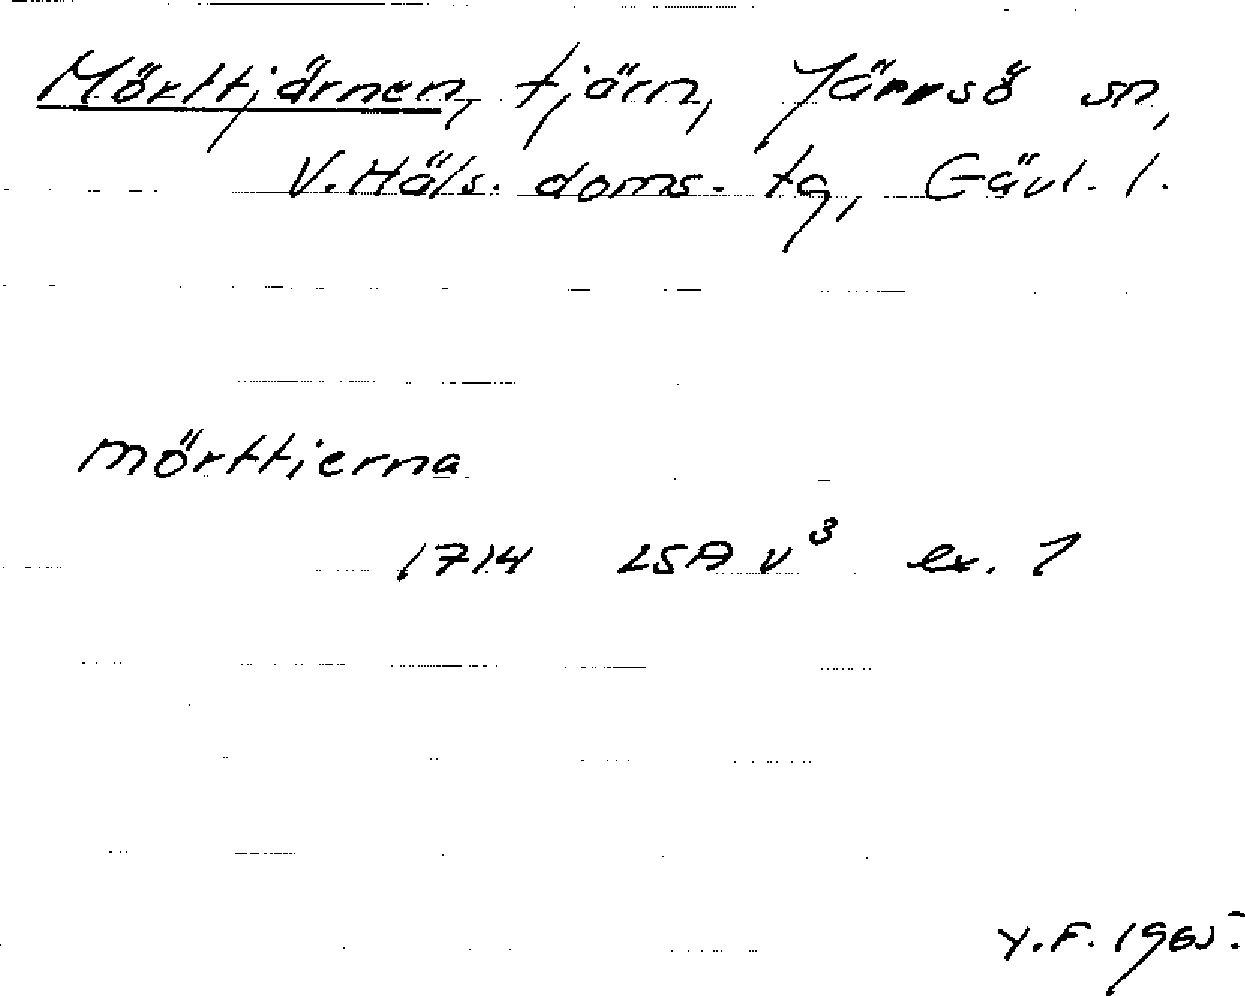 Mörttjärnen, tjärn, Järvsö sn,
V. Häls. doms. tg, Gävl. l.
mörttjerna
1714 LSA v³ ex. 1
Y.F. 1965.